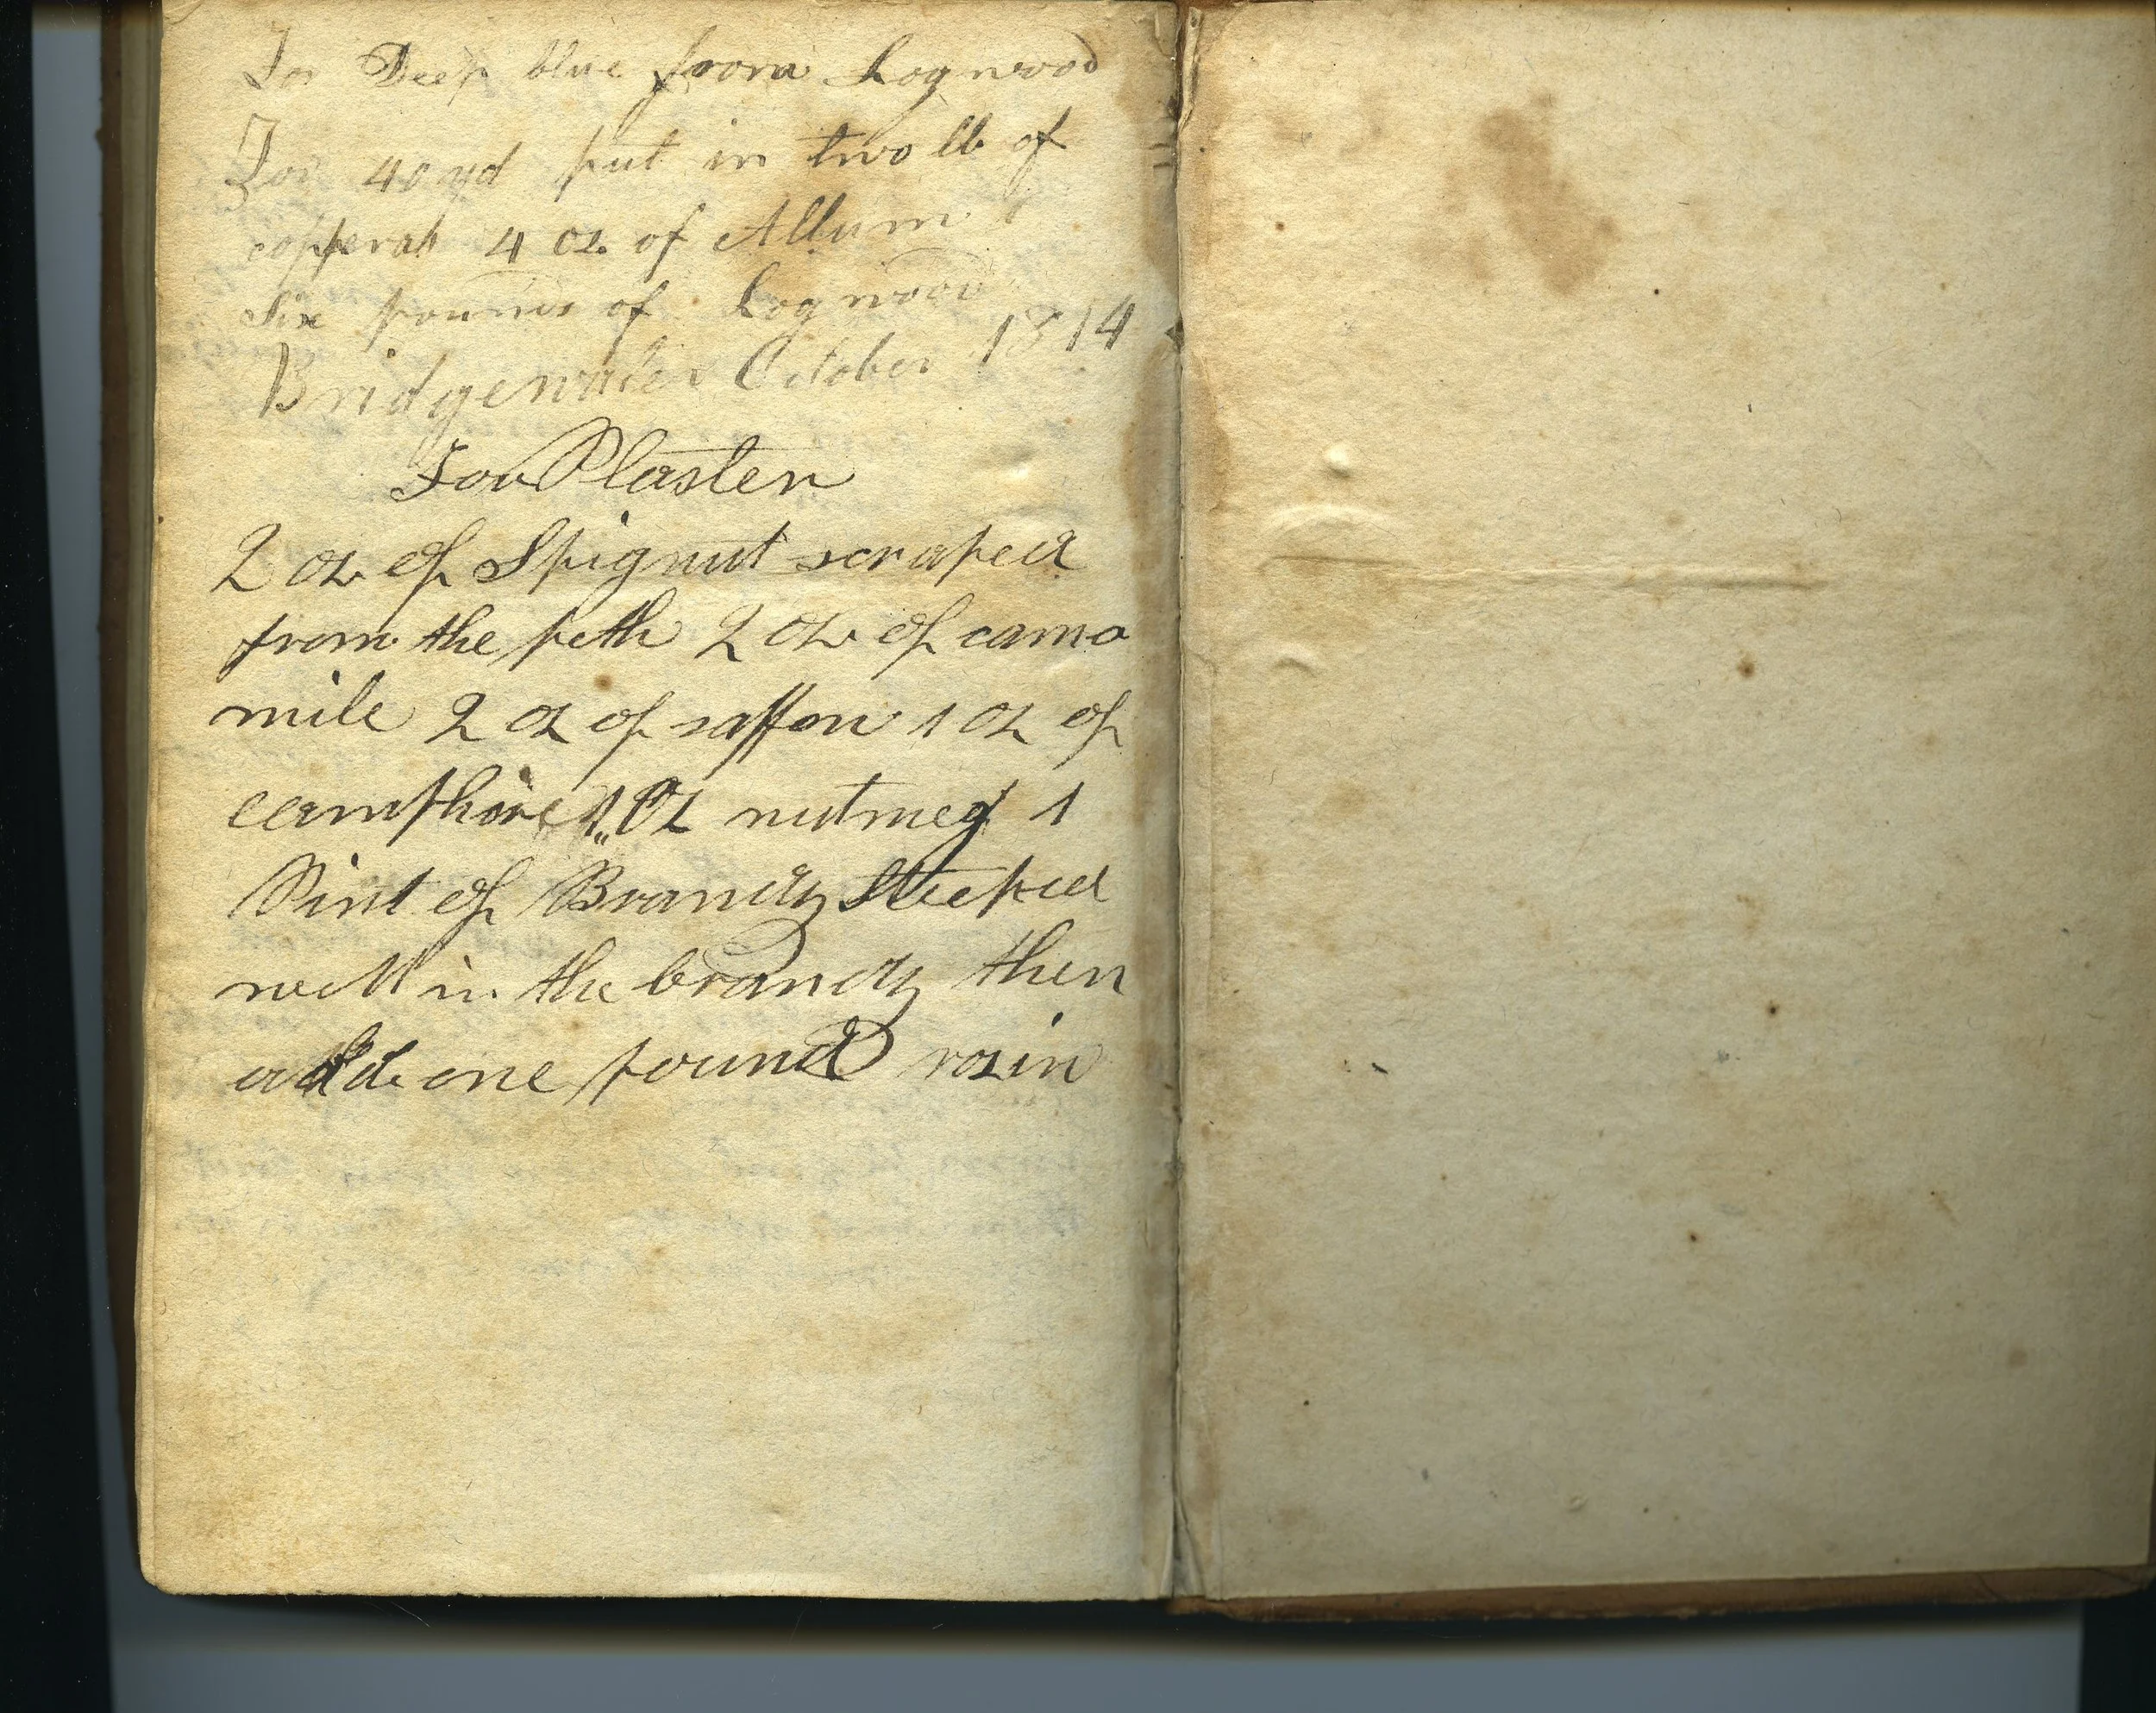 For Deep blue from Logwood
For 40 yd put in two lb of
copperas 4 oz of Allum
Six pounds of Logwood
Bridgewater October 1814
For Plaster
2 oz of Spignut scraped
from the peth 2 oz of camo
mile 2 oz of saffon 1 oz of
camphire 1 oz nutmeg 1
Pint of Brandy Steeped
well in the brandy then
add one pound rozin